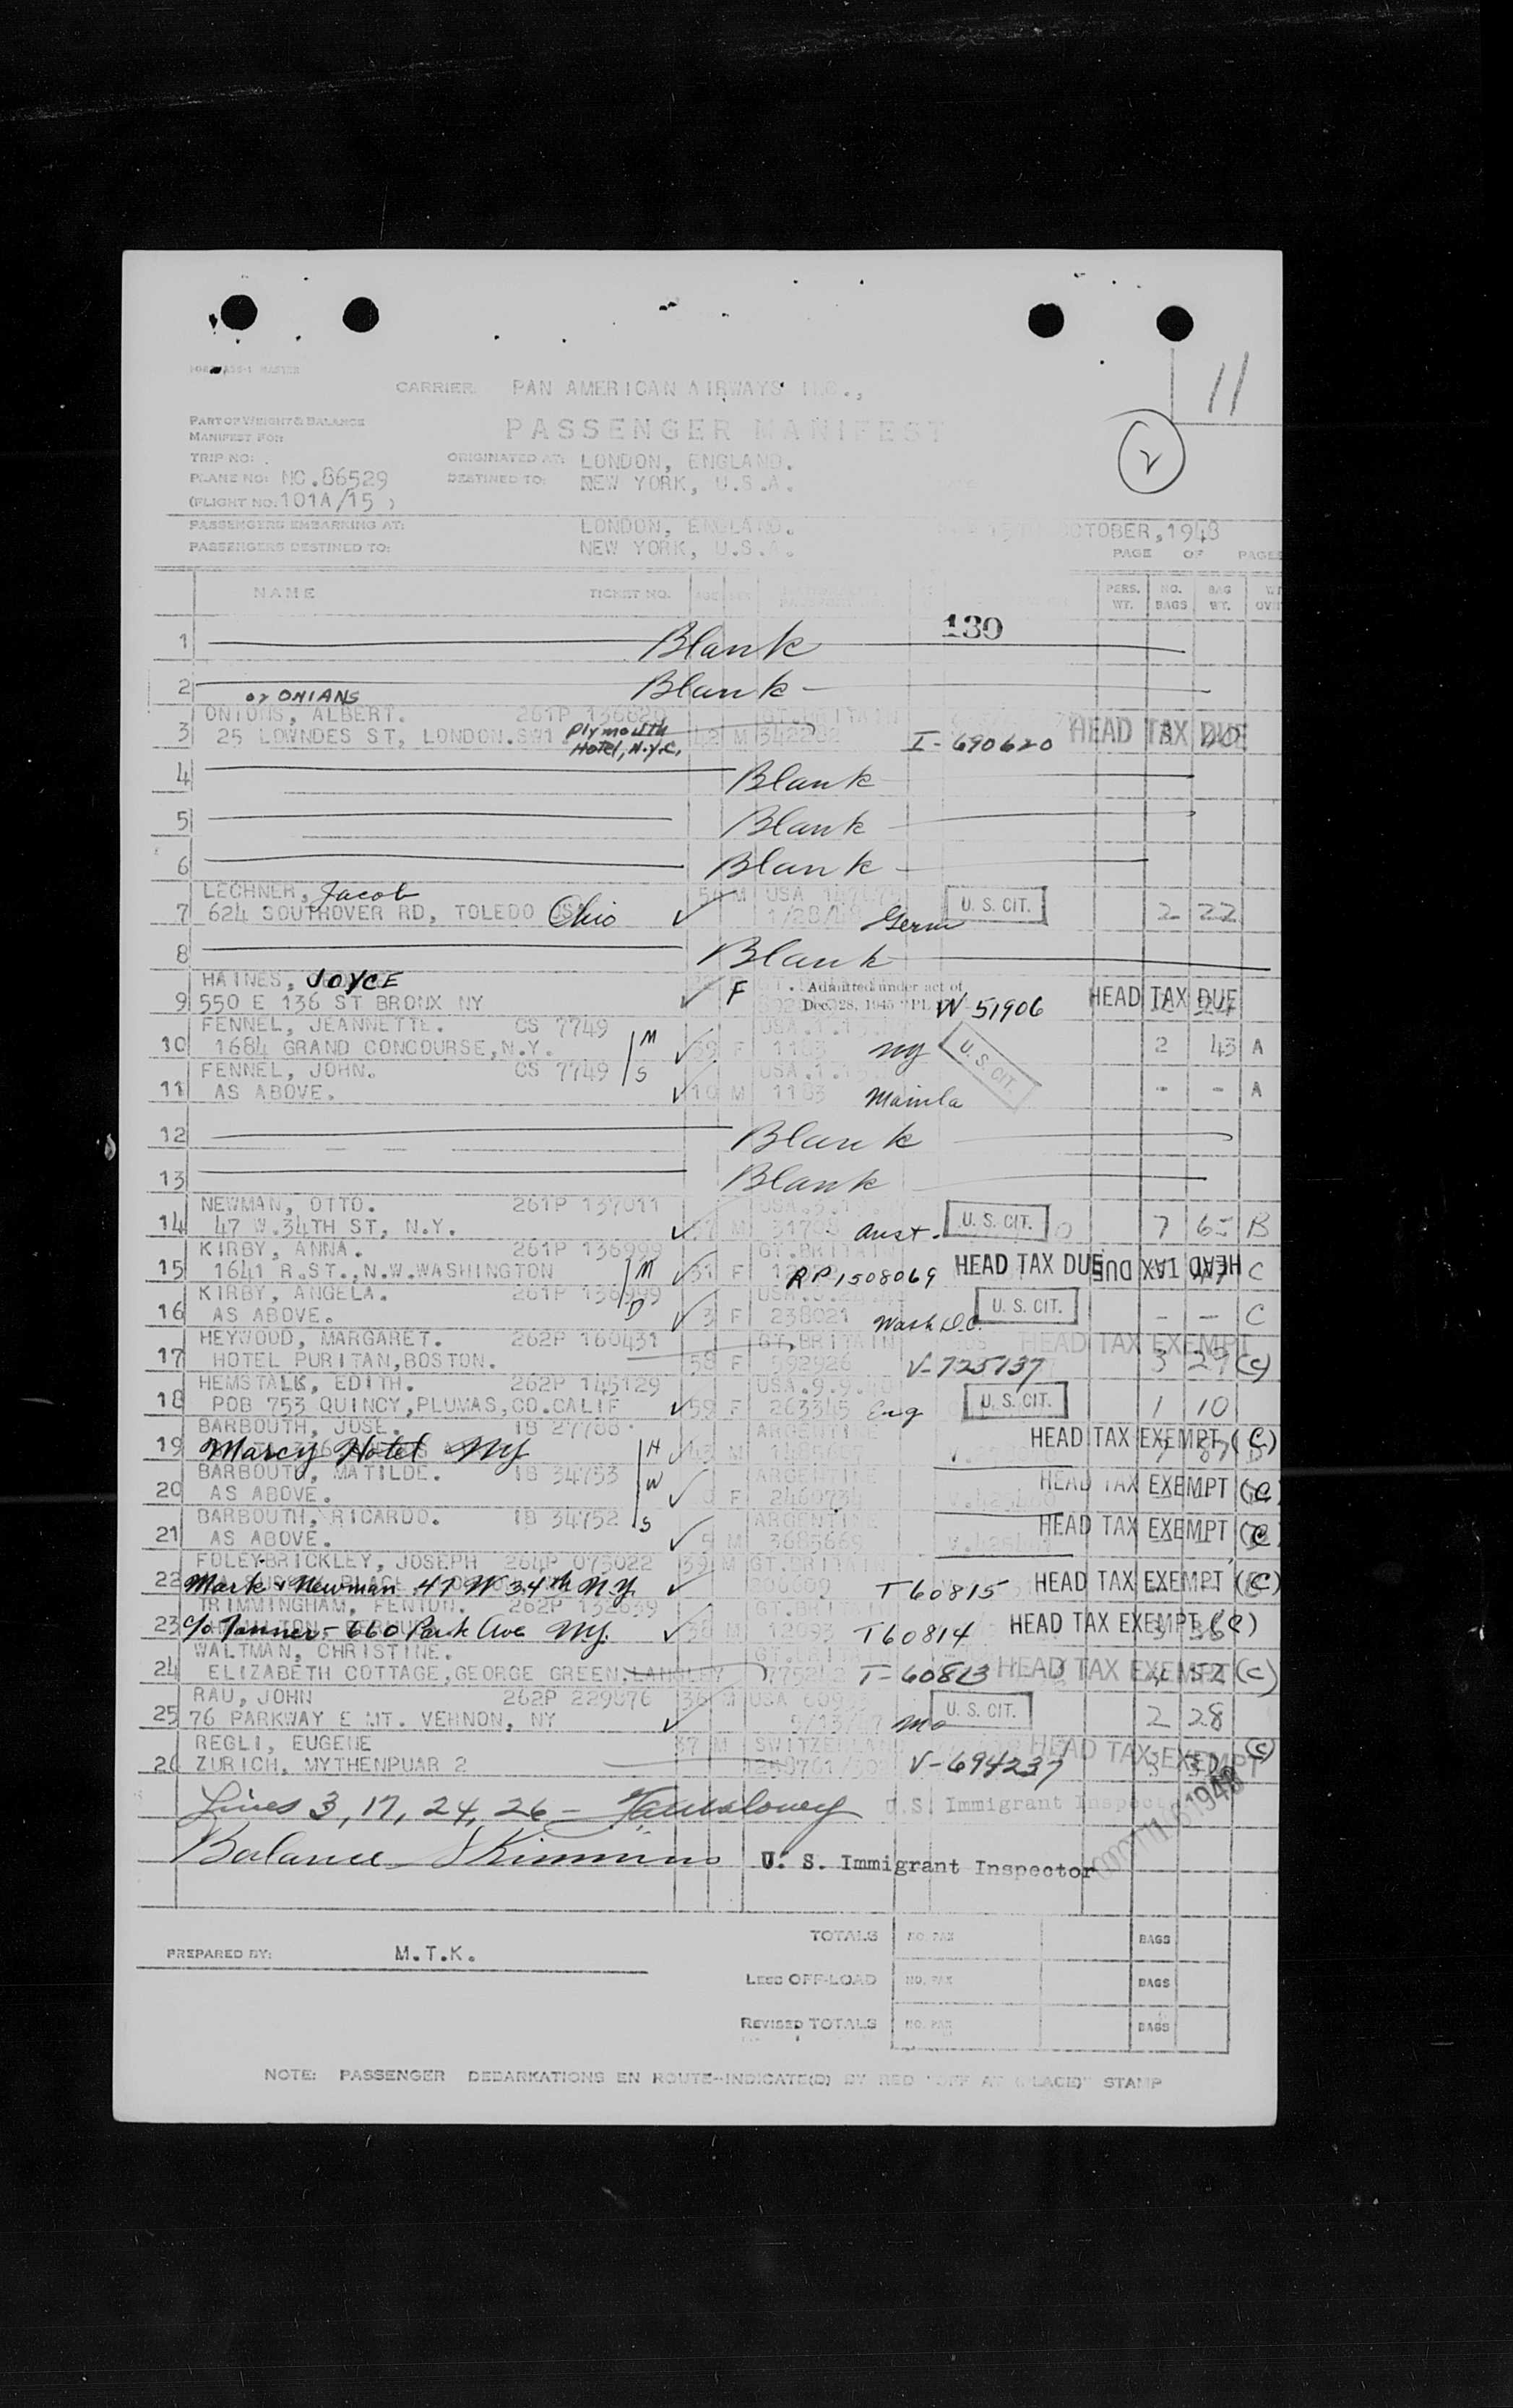 11
CARRIER PAN AMERICAN AIRWAYS INC.,
PART OF WEIGHT & BALANCE
MANIFEST FOR
PASSENGER MANIFEST
2
TRIP NO:
ORIGINATED AT: LONDON, ENGLAND.
PLANE NO: NC.86529
DESTINED TO: NEW YORK, U.S.A.
(FLIGHT NO. 101A/15 )
PASSENGERS EMBARKING AT: LONDON, ENGLAND. OCTOBER, 1948
PASSENGERS DESTINED TO: NEW YORK, U.S.A.
PAGE OF PAGES
NAME TICKET NO. AGE SEX PERS. WT. NO. BAGS BAG WT.
130
1 Blank
2 Blank
or ONIANS
ONIONS, ALBERT. 261P
3 25 LOWNDES ST, LONDON.SW1 Plymouth Hotel, N.Y.C. 42 M I-690620 HEAD TAX DUE
4 Blank
5 Blank
6 Blank
LECHNER, Jacob 54 M USA
7 624 SOUTHOVER RD, TOLEDO Ohio 1/28/48 Germ U. S. CIT. 2 22
8 Blank
HAINES, JOYCE Admitted under act of
9 550 E 136 ST BRONX NY F Dec. 28, 1945 PL W-51906 HEAD TAX DUE
FENNEL, JEANNETTE. CS 7749 USA.
10 1684 GRAND CONCOURSE, N.Y. M 39 F 1183 NY U. S. CIT. 2 43 A
FENNEL, JOHN. CS 7749 S USA.
11 AS ABOVE. 10 M 1183 Manila - - A
12 Blank
13 Blank
NEWMAN, OTTO. 261P 137011
14 47 W.34TH ST, N.Y. M Aust. U. S. CIT. 7 B
KIRBY, ANNA. 261P 136999 GT.BRITAIN
15 1641 R.ST., N.W.WASHINGTON M 31 F RP1508069 HEAD TAX DUE HEAD TAX DUE C
KIRBY, ANGELA. 261P 136999
16 AS ABOVE. D 3 F 238021 Wash D.C. U. S. CIT. - - C
HEYWOOD, MARGARET. 262P 160431 GT.BRITAIN HEAD TAX EXEMPT
17 HOTEL PURITAN, BOSTON. 58 F 592926 V-725137 3 27 (C)
HEMSTALK, EDITH. 262P 145129 USA.9.9.
18 POB 753 QUINCY, PLUMAS, CO.CALIF 59 F 263345 Eng U. S. CIT. 1 10
BARBOUTH, JOSE. IB 27788 ARGENTINE
19 Marcy Hotel NY H 43 M HEAD TAX EXEMPT (C)
BARBOUTH, MATILDE. IB 34753 ARGENTINE
20 AS ABOVE. W F 2460734 HEAD TAX EXEMPT (C)
BARBOUTH, RICARDO. IB 34752 ARGENTINE
21 AS ABOVE. S 5 M 3685669 HEAD TAX EXEMPT (C)
FOLEY-BRICKLEY, JOSEPH 264P 073022 39 M GT.BRITAIN
22 Mark & Newman 47 W 34th N.Y. T60815 HEAD TAX EXEMPT (C)
TRIMMINGHAM, FENTON. 262P 132639 GT.BRITAIN
23 c/o Tanner - 660 Park Ave NY. 38 M 12093 T60814 HEAD TAX EXEMPT (C)
WALTMAN, CHRISTINE. GT.BRITAIN
24 ELIZABETH COTTAGE, GEORGE GREEN, LANGLEY T-60813 HEAD TAX EXEMPT (C)
RAU, JOHN 262P 229876 36 M USA
25 76 PARKWAY E MT. VERNON, NY Mo U. S. CIT. 2 28
REGLI, EUGENE 37 M SWITZERLAND HEAD TAX EXEMPT (C)
26 ZURICH, MYTHENPUAR 2 V-694237
Lines 3, 17, 24, 26 - U.S. Immigrant Inspector
Balance U. S. Immigrant Inspector
1948
TOTALS NO. PAX BAGS
PREPARED BY: M.T.K.
LESS OFF-LOAD NO. PAX BAGS
REVISED TOTALS NO. PAX BAGS
NOTE: PASSENGER DEBARKATIONS EN ROUTE--INDICATE(D) BY RED "OFF AT (PLACE)" STAMP